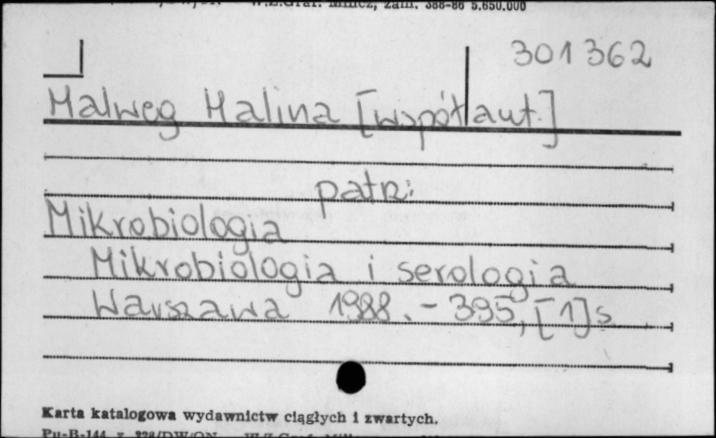 W.Z.Graf. zam. 388-86 5.650.000
301 362
Malweg Halina [współaut.]
patrz:
Mikrobiologia
Mikrobiologia i serologia
Warszawa 1988. - 395, [1] s
Karta katalogowa wydawnictw ciągłych i zwartych.
Pu-B-144